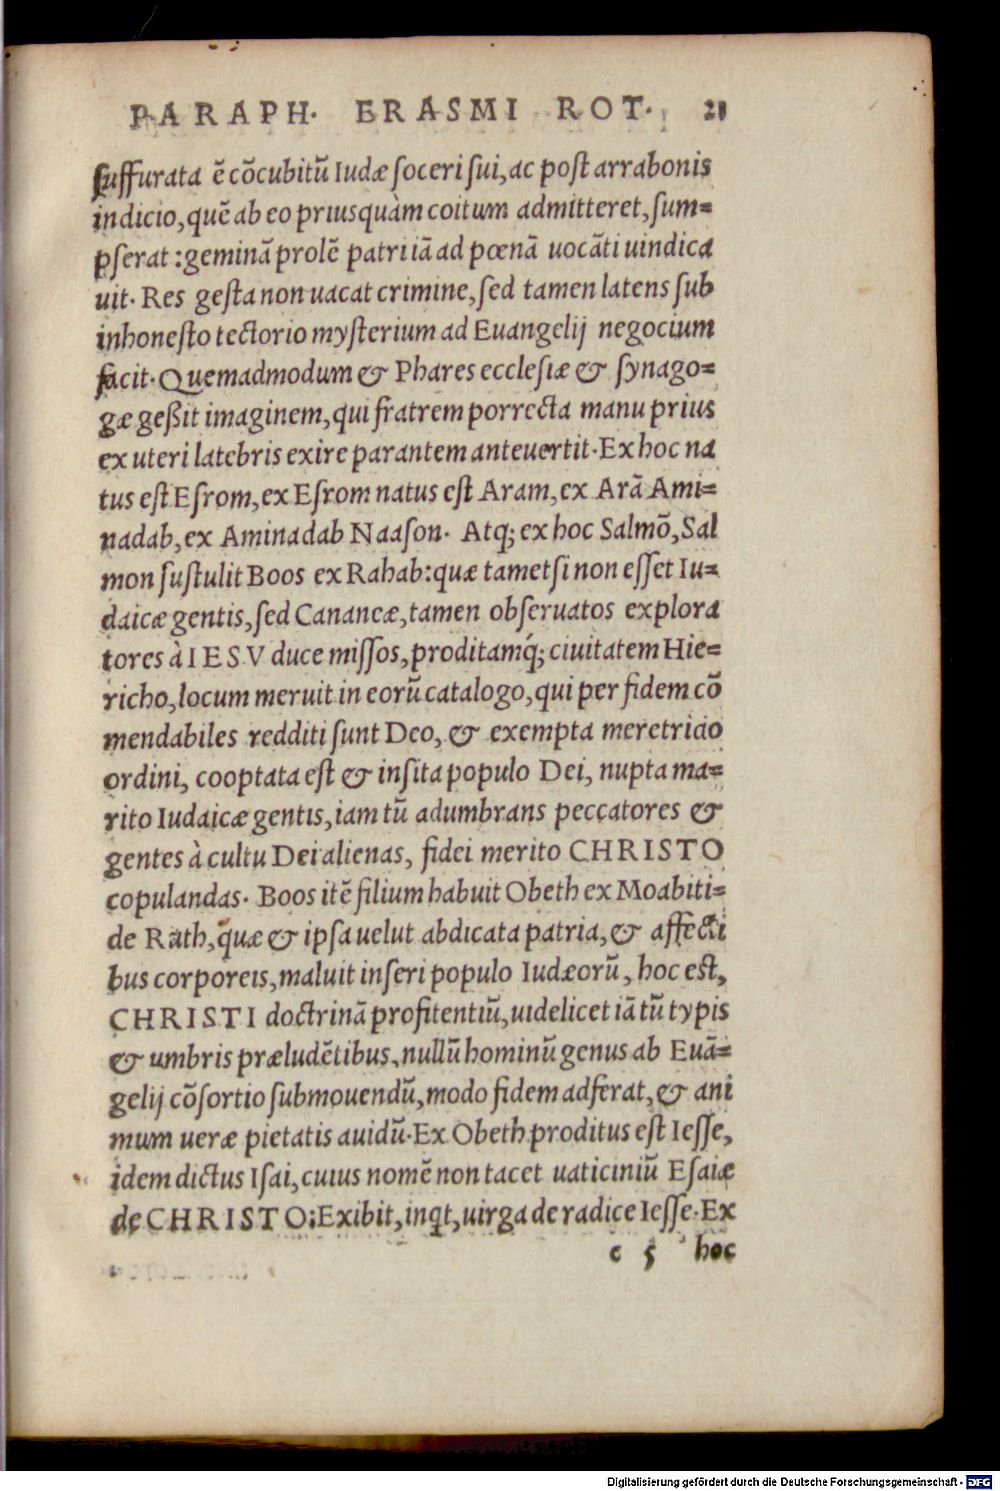 PARAPH. ERASMI ROT. 21
suffurata ẽ cõcubitũ Iudæ soceri sui, ac post arrabonis
indicio, quẽ ab eo priusquàm coitum admitteret, sum=
pserat: geminã prolẽ patri iã ad pœnã uocãti uindica
uit. Res gesta non uacat crimine, sed tamen latens sub
inhonesto tectorio mysterium ad Euangelij negocium
facit. Quemadmodum & Phares ecclesiæ & synago=
gæ geßit imaginem, qui fratrem porrecta manu prius
ex uteri latebris exire parantem anteuertit. Ex hoc na
tus est Esrom, ex Esrom natus est Aram, ex Arã Ami=
nadab, ex Aminadab Naason. Atq; ex hoc Salmõ, Sal
mon sustulit Boos ex Rahab: quæ tametsi non esset Iu=
daicæ gentis, sed Cananeæ, tamen obseruatos explora
tores à IESV duce missos, proditamq́; ciuitatem Hie=
richo, locum meruit in eorũ catalogo, qui per fidem cõ
mendabiles redditi sunt Deo, & exempta meretricio
ordini, cooptata est & insita populo Dei, nupta ma=
rito Iudaicæ gentis, iam tũ adumbrans peccatores &
gentes à cultu Dei alienas, fidei merito CHRISTO
copulandas. Boos itẽ filium habuit Obeth ex Moabiti=
de Rath, quæ & ipsa uelut abdicata patria, & affecti
bus corporeis, maluit inseri populo Iudæorũ, hoc est,
CHRISTI doctrinã profitentiũ, uidelicet iã tũ typis
& umbris præludẽtibus, nullũ hominũ genus ab Euã=
gelij cõsortio submouendũ, modo fidem adferat, & ani
mum ueræ pietatis auidũ. Ex Obeth proditus est Iesse,
idem dictus Isai, cuius nomẽ non tacet uaticiniũ Esaiæ
de CHRISTO: Exibit, inqt, uirga de radice Iesse. Ex
c 5 hoc
Digitalisierung gefördert durch die Deutsche Forschungsgemeinschaft - DFG